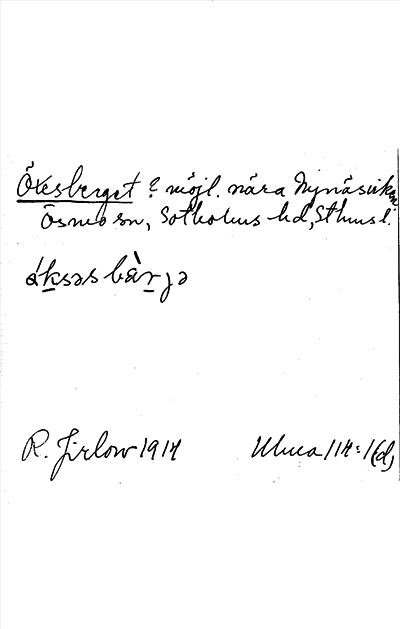 Öxesberget ? möjl. nära Nynäsviken
Ösmo sn, Sotholms hd, Sthms l.
áksəs bà̈rjə
R. Jirlow 1914